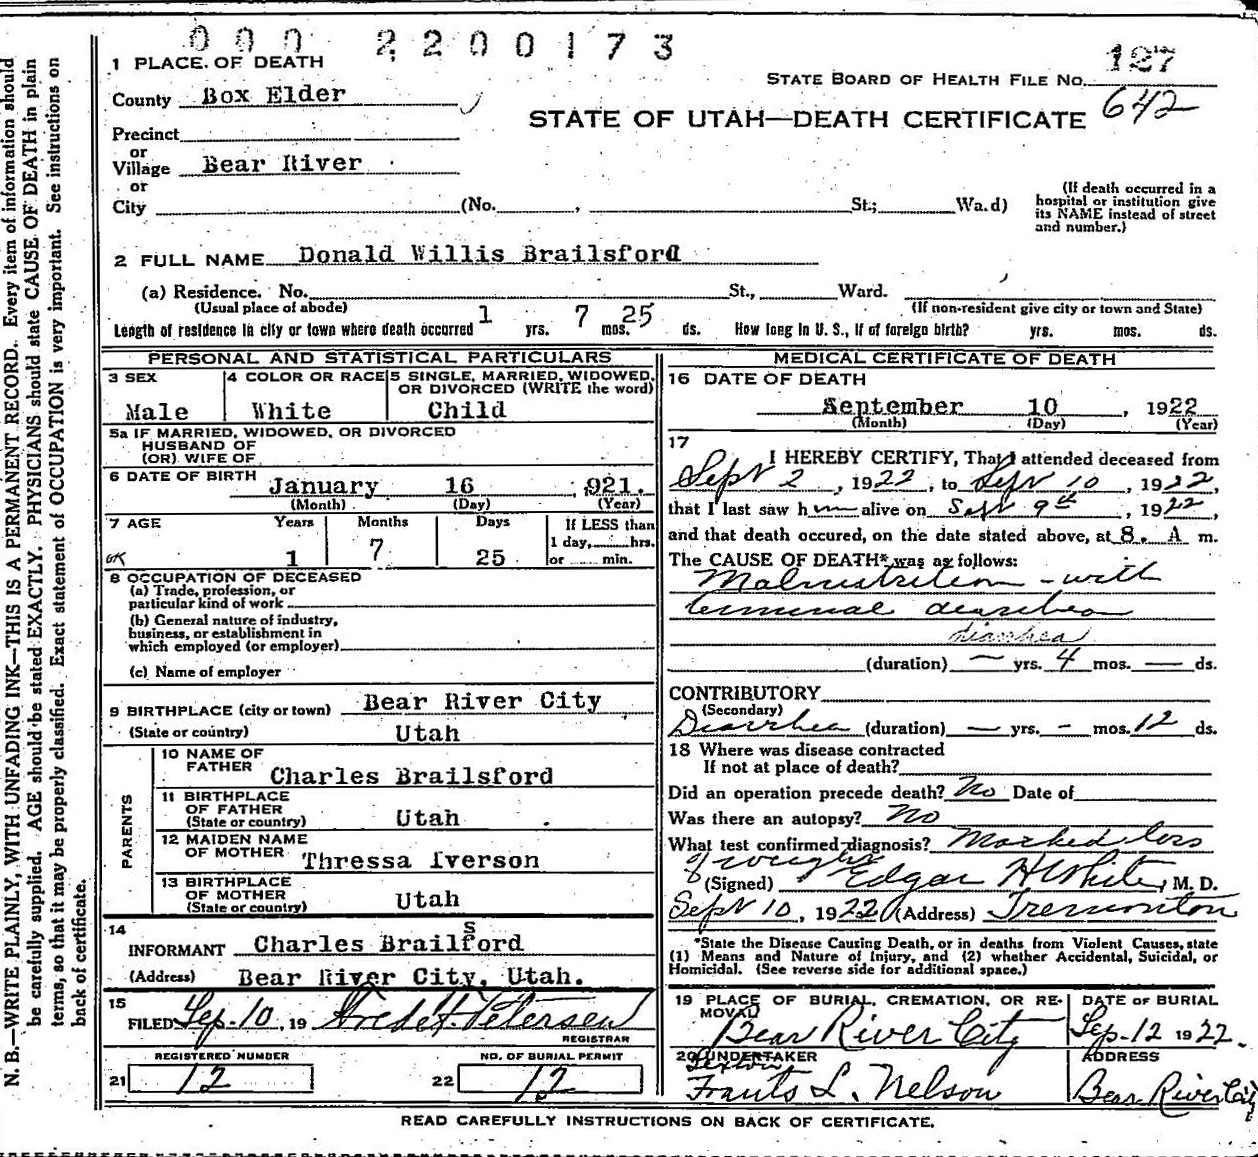 000 2200173
1 PLACE OF DEATH
STATE BOARD OF HEALTH FILE No. 127
County Box Elder
STATE OF UTAH—DEATH CERTIFICATE 642
Precinct
or
Village Bear River
or
City (No. , St.; Wa.d)
(If death occurred in a
hospital or institution give
its NAME instead of street
and number.)
2 FULL NAME Donald Willis Brailsford
(a) Residence. No. St., Ward.
(Usual place of abode) (If non-resident give city or town and State)
Length of residence in city or town where death occurred 1 yrs. 7 mos. 25 ds. How long in U. S., if of foreign birth? yrs. mos. ds.
PERSONAL AND STATISTICAL PARTICULARS
3 SEX
Male
4 COLOR OR RACE
White
5 SINGLE, MARRIED, WIDOWED,
OR DIVORCED (WRITE the word)
Child
5a IF MARRIED, WIDOWED, OR DIVORCED
HUSBAND OF
(OR) WIFE OF
6 DATE OF BIRTH January 16 , 921.
(Month) (Day) (Year)
7 AGE Years Months Days If LESS than
1 day, hrs.
OK 1 7 25 or min.
8 OCCUPATION OF DECEASED
(a) Trade, profession, or
particular kind of work
(b) General nature of industry,
business, or establishment in
which employed (or employer)
(c) Name of employer
9 BIRTHPLACE (city or town) Bear River City
(State or country) Utah
PARENTS
10 NAME OF
FATHER Charles Brailsford
11 BIRTHPLACE
OF FATHER
(State or country) Utah
12 MAIDEN NAME
OF MOTHER Thressa Iverson
13 BIRTHPLACE
OF MOTHER
(State or country) Utah
14
INFORMANT Charles Brailsford
(Address) Bear River City, Utah.
15
FILED Sep-10, 19 Fred H. Petersen
REGISTRAR
REGISTERED NUMBER NO. OF BURIAL PERMIT
21 12 22 12
MEDICAL CERTIFICATE OF DEATH
16 DATE OF DEATH
September 10 , 1922
(Month) (Day) (Year)
17
I HEREBY CERTIFY, That I attended deceased from
Sept 2 , 1922, to Sept 10 , 1922,
that I last saw him alive on Sept 9th , 1922,
and that death occured, on the date stated above, at 8. A m.
The CAUSE OF DEATH* was as follows:
Malnutrition - with
terminal diarrhea
diarrhea
(duration) — yrs. 4 mos. — ds.
CONTRIBUTORY
(Secondary)
Diarrhea (duration) — yrs. - mos. 12 ds.
18 Where was disease contracted
If not at place of death?
Did an operation precede death? No Date of
Was there an autopsy? No
What test confirmed diagnosis? Marked loss
of weight
(Signed) Edgar H White, M. D.
Sept 10, 1922 (Address) Tremonton
*State the Disease Causing Death, or in deaths from Violent Causes, state
(1) Means and Nature of Injury, and (2) whether Accidental, Suicidal, or
Homicidal. (See reverse side for additional space.)
19 PLACE OF BURIAL, CREMATION, OR RE-
MOVAL
Bear River City
DATE OF BURIAL
Sep-12 1922.
20 UNDERTAKER
Sexton
Frants L. Nelson
ADDRESS
Bear River City
READ CAREFULLY INSTRUCTIONS ON BACK OF CERTIFICATE.
N. B.—WRITE PLAINLY, WITH UNFADING INK—THIS IS A PERMANENT RECORD. Every item of information should
be carefully supplied. AGE should be stated EXACTLY. PHYSICIANS should state CAUSE OF DEATH in plain
terms, so that it may be properly classified. Exact statement of OCCUPATION is very important. See instructions on
back of certificate.